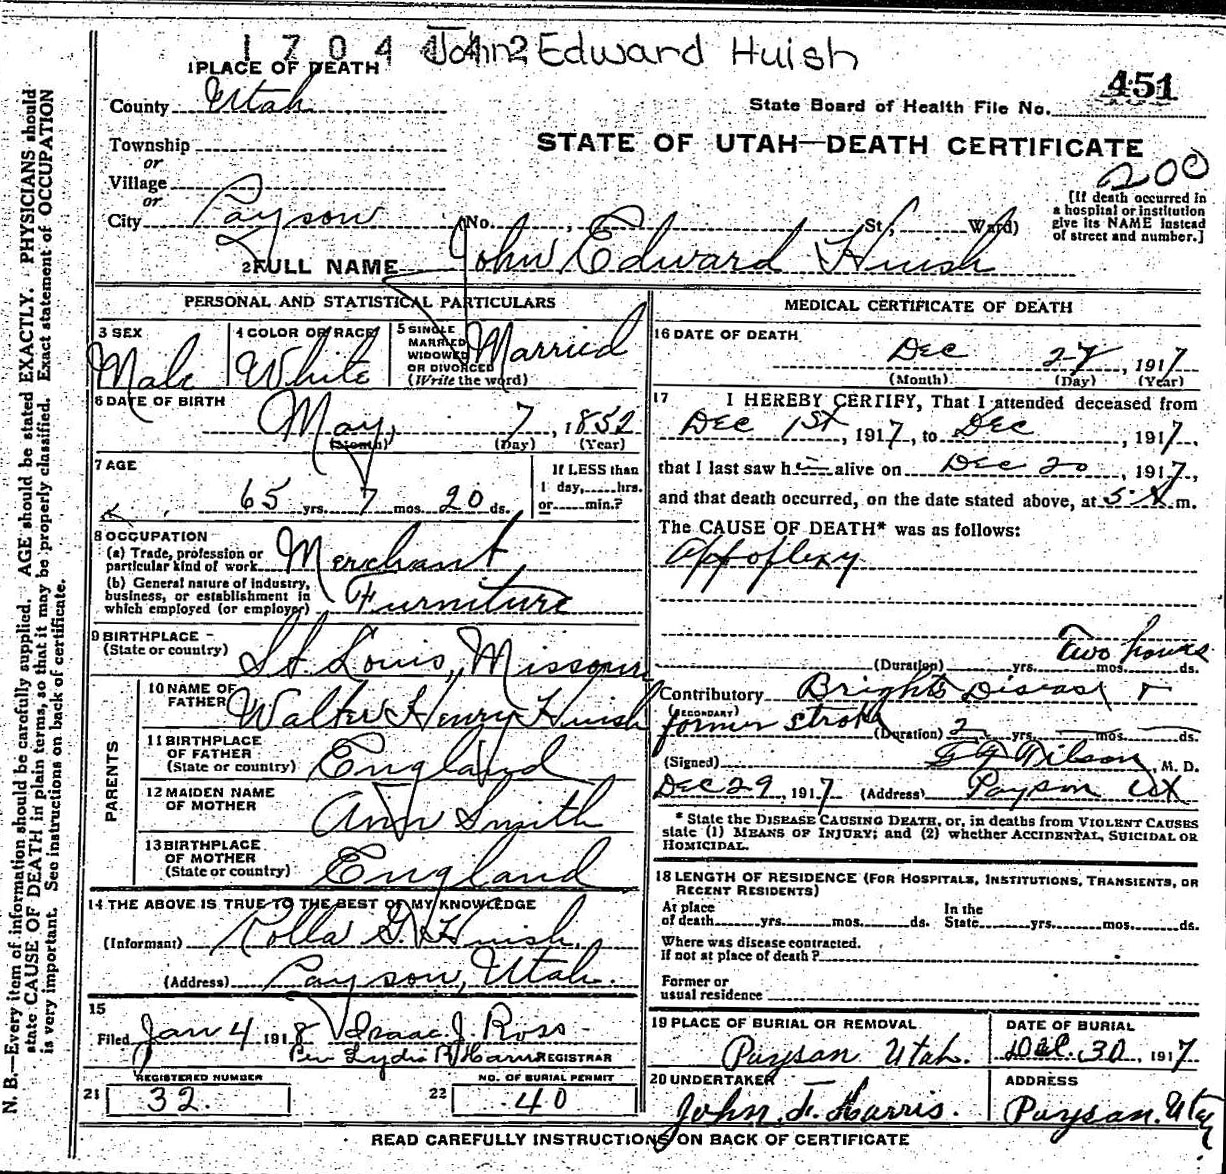 1704442 John Edward Huish
1 PLACE OF DEATH
451
County Utah
State Board of Health File No.
Township
STATE OF UTAH—DEATH CERTIFICATE
or
Village
200
or
City Payson No. , St; Ward)
[If death occurred in
a hospital or institution
give its NAME instead
of street and number.]
2 FULL NAME John Edward Huish
PERSONAL AND STATISTICAL PARTICULARS
3 SEX
Male
4 COLOR OR RACE
White
5 SINGLE
MARRIED
WIDOWED
OR DIVORCED
(Write the word)
Married
6 DATE OF BIRTH
May, 7, 1852
(Month) (Day) (Year)
7 AGE
65 yrs. 7 mos. 20 ds.
If LESS than
1 day,......hrs.
or......min.?
8 OCCUPATION
(a) Trade, profession or
particular kind of work Merchant
(b) General nature of industry,
business, or establishment in
which employed (or employer) Furniture
9 BIRTHPLACE
(State or country) St. Louis, Missouri
PARENTS
10 NAME OF
FATHER Walter Henry Huish
11 BIRTHPLACE
OF FATHER
(State or country) England
12 MAIDEN NAME
OF MOTHER
Ann Smith
13 BIRTHPLACE
OF MOTHER
(State or country) England
14 THE ABOVE IS TRUE TO THE BEST OF MY KNOWLEDGE
(Informant) Rolla G. Huish.
(Address) Payson, Utah.
15
Filed Jan 4 1918 Isaac J. Ross
Per Lydia R REGISTRAR
REGISTERED NUMBER
21 32.
NO. OF BURIAL PERMIT
22 40
MEDICAL CERTIFICATE OF DEATH
16 DATE OF DEATH
Dec 27, 1917
(Month) (Day) (Year)
17 I HEREBY CERTIFY, That I attended deceased from
Dec 1st, 1917, to Dec , 1917,
that I last saw h alive on Dec 20, 1917,
and that death occurred, on the date stated above, at 5 m.
The CAUSE OF DEATH* was as follows:
Appoplexy
Two hours
(Duration) yrs. mos. ds.
Contributory Brights Disease +
(SECONDARY)
former stroke (Duration) 2 yrs. — mos. — ds.
(Signed) Wilson, M. D.
Dec 29, 1917 (Address) Payson Ut
* State the DISEASE CAUSING DEATH, or, in deaths from VIOLENT CAUSES
state (1) MEANS OF INJURY; and (2) whether ACCIDENTAL, SUICIDAL OR
HOMICIDAL.
18 LENGTH OF RESIDENCE (FOR HOSPITALS, INSTITUTIONS, TRANSIENTS, OR
RECENT RESIDENTS)
At place
of death......yrs......mos......ds.
In the
State......yrs......mos......ds.
Where was disease contracted.
If not at place of death?
Former or
usual residence
19 PLACE OF BURIAL OR REMOVAL
Payson Utah.
DATE OF BURIAL
Dec. 30, 1917
20 UNDERTAKER
John F. Harris.
ADDRESS
Payson. Utah
READ CAREFULLY INSTRUCTIONS ON BACK OF CERTIFICATE
N. B.—Every item of information should be carefully supplied. AGE should be stated EXACTLY. PHYSICIANS should
state CAUSE OF DEATH in plain terms, so that it may be properly classified. Exact statement of OCCUPATION
is very important. See instructions on back of certificate.